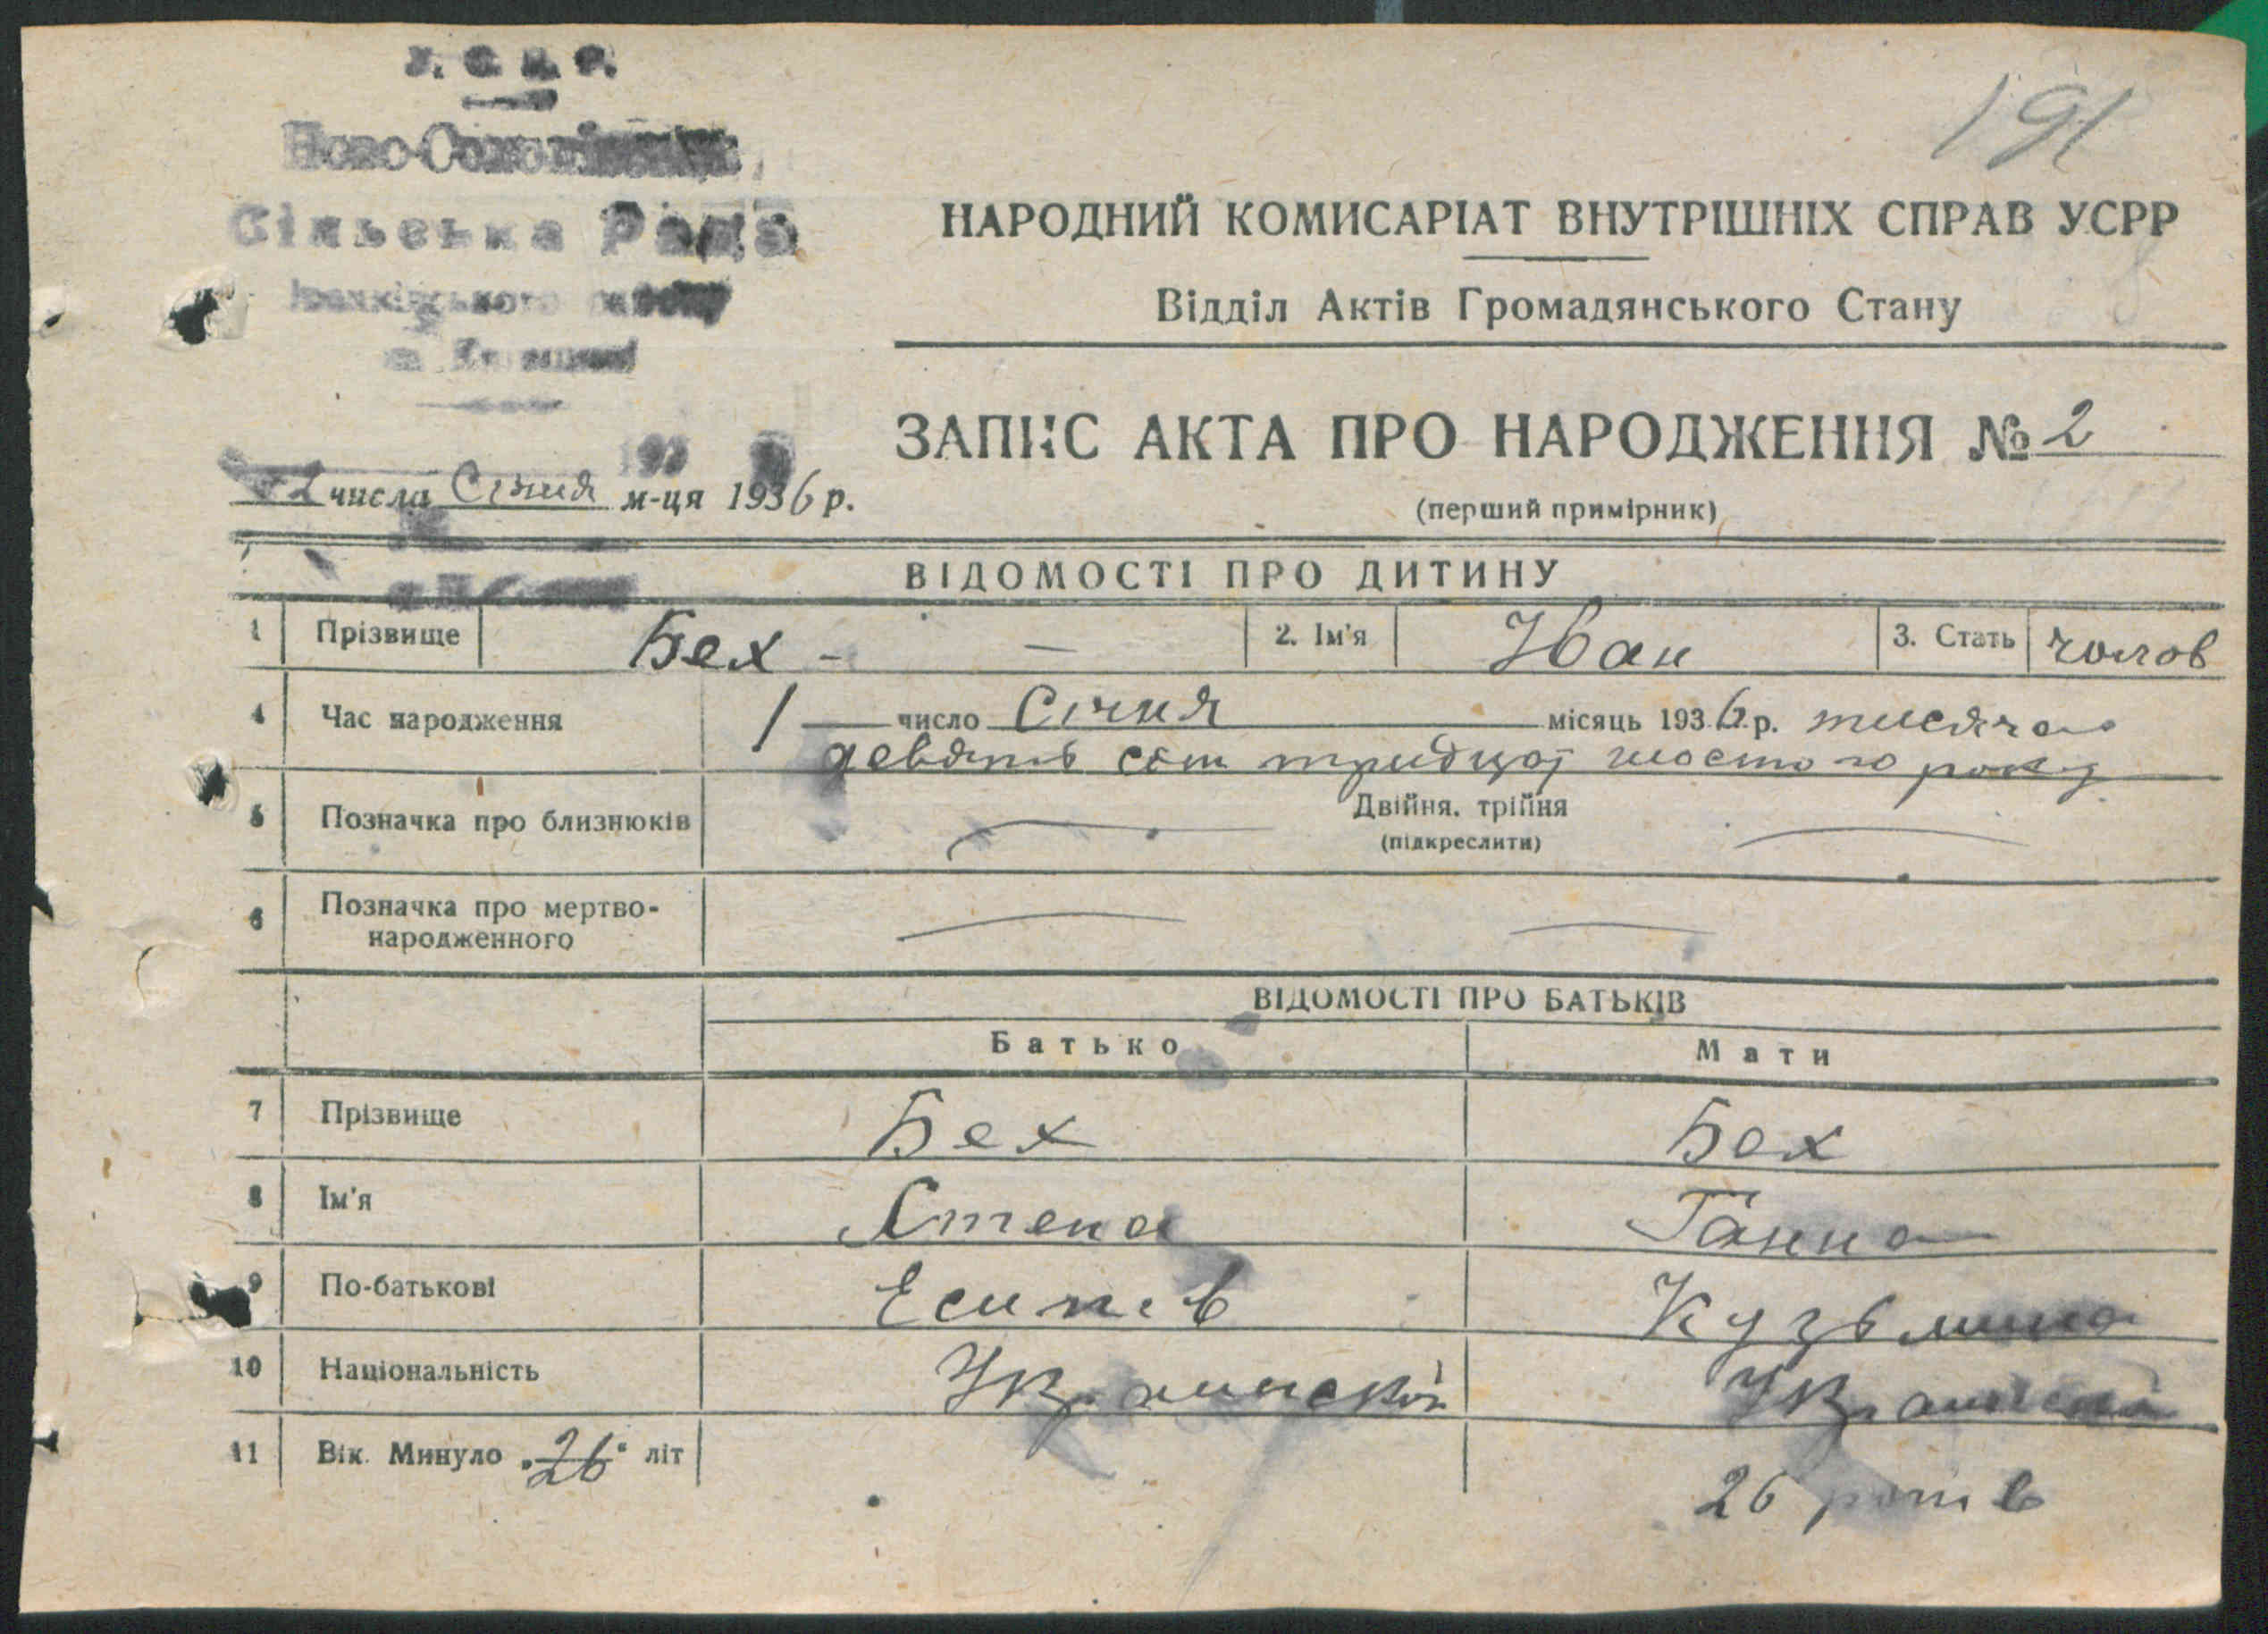 У. С. Р. Р.
191
Сільська Рада
району
НАРОДНИЙ КОМИСАРІАТ ВНУТРІШНІХ СПРАВ УСРР
Відділ Актів Громадянського Стану
ЗАПИС АКТА ПРО НАРОДЖЕННЯ № 2
числа Січня м-ця 1936 р.
(перший примірник)
ВІДОМОСТІ ПРО ДИТИНУ
1 Прізвище Бех - — 2. Ім'я Иван 3. Стать чолов
4 Час народження 1 число Січня місяць 1936 р. тисяча
девять сот тридцят шостого року
5 Позначка про близнюків Двійня, трійня
(підкреслити)
6 Позначка про мертво-
народженного
ВІДОМОСТІ ПРО БАТЬКІВ
Батько Мати
7 Прізвище Бех Бех
8 Ім'я Ганна
9 По-батькові Есипів Кузьмина
10 Національність
11 Вік. Минуло „26“ літ
26 років